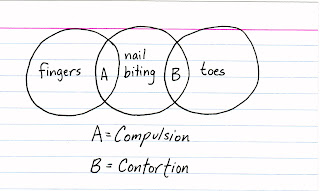 nail
fingers A biting B toes
A = Compulsion
B = Contortion